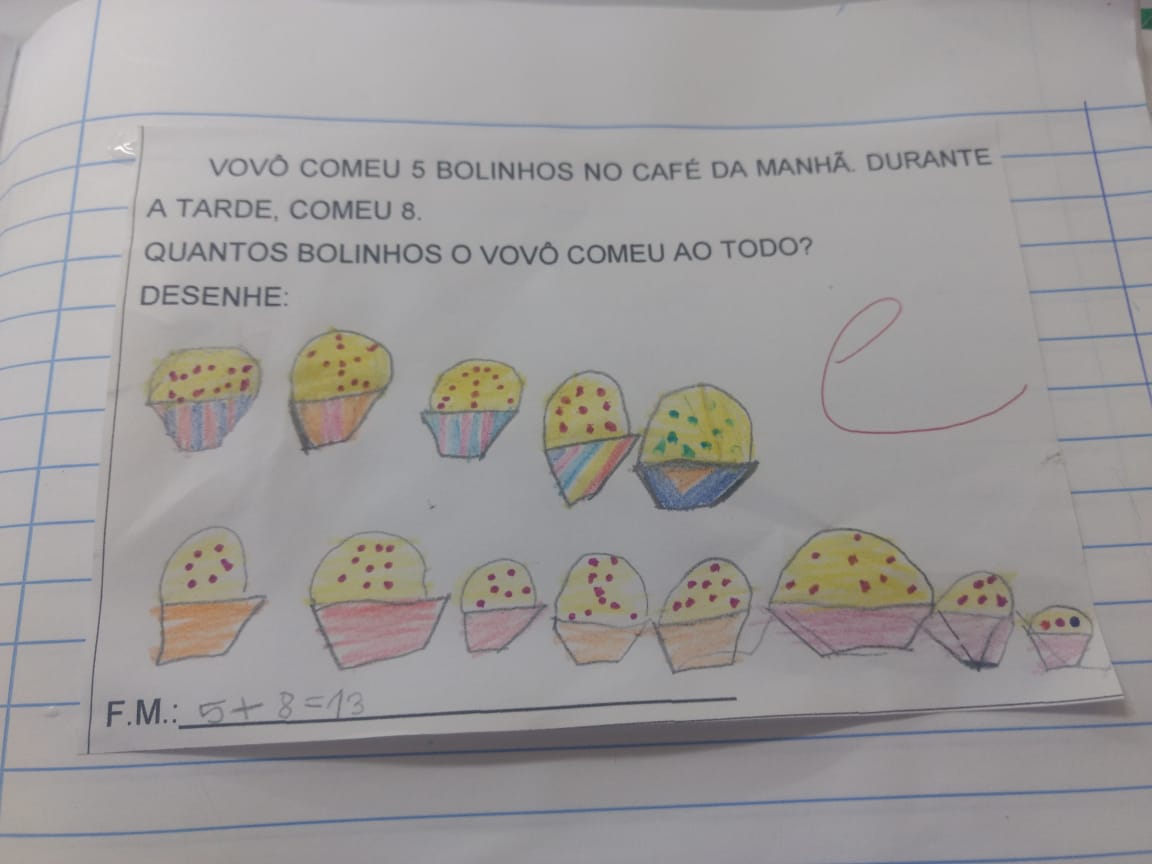 VOVÔ COMEU 5 BOLINHOS NO CAFÉ DA MANHÃ. DURANTE
A TARDE, COMEU 8.
QUANTOS BOLINHOS O VOVÔ COMEU AO TODO?
DESENHE:
C
F.M.: 5+8=13